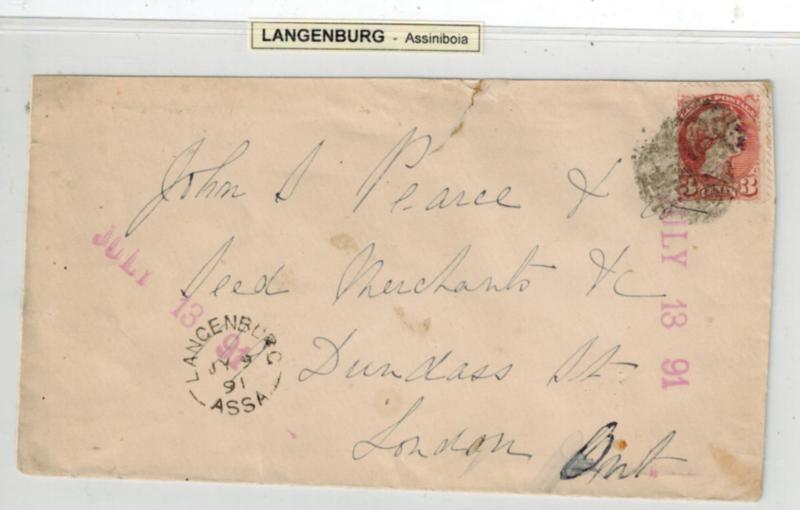 LANGENBURG - Assiniboia
POSTAGE
3 CENTS 3
John S Pearce & Co
Seed Merchants &c
Dundass St.
London Ont
JULY 13 91
JULY 13 91
LANGENBURG
91
ASSA